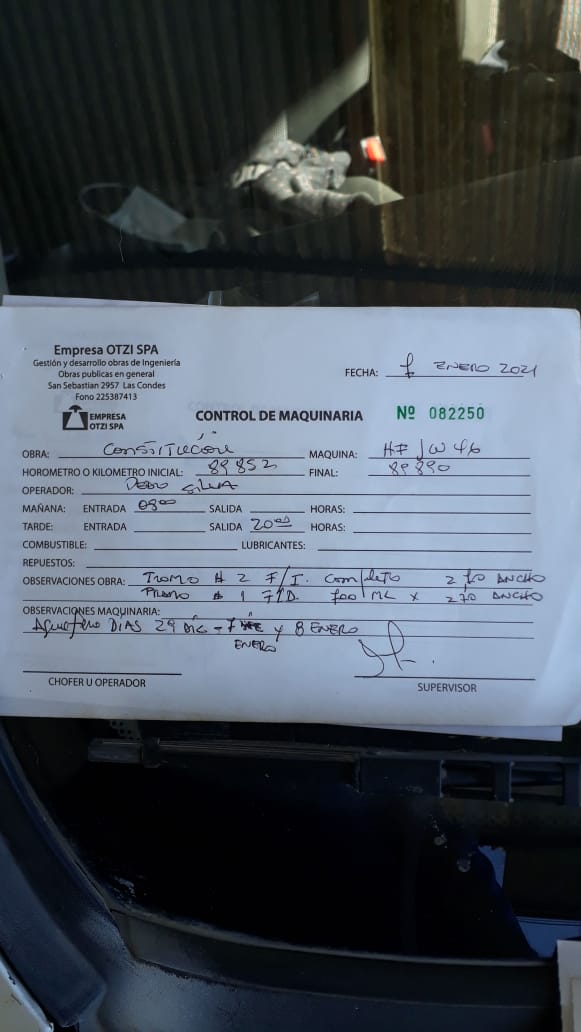 Empresa OTZI SPA
Gestión y desarrollo obras de Ingeniería
Obras publicas en general
San Sebastian 2957 Las Condes
Fono 225387413
EMPRESA
OTZI SPA
FECHA: ENERO 2021
CONTROL DE MAQUINARIA Nº 082250
OBRA: Constitución MAQUINA: HF JW 46
HOROMETRO O KILOMETRO INICIAL: 89852 FINAL: 89890
OPERADOR: Pedro Silva
MAÑANA: ENTRADA 08:00 SALIDA HORAS:
TARDE: ENTRADA SALIDA 20:00 HORAS:
COMBUSTIBLE: LUBRICANTES:
REPUESTOS:
OBSERVACIONES OBRA: Tramo # 2 F/I. Completo 2,70 ANCHO
Tramo # 1 F/D. 700 ML x 270 ANCHO
OBSERVACIONES MAQUINARIA:
DIAS 29 Dic - 7 y 8 ENERO
ENERO
CHOFER U OPERADOR
SUPERVISOR